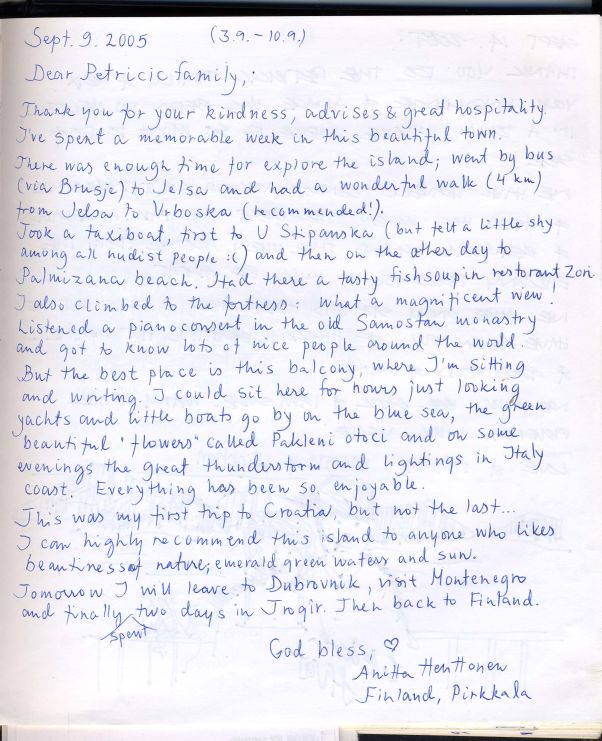 Sept. 9. 2005 (3.9. - 10.9.)
Dear Petricic family,
Thank you for your kindness, advises & great hospitality.
I've spent a memorable week in this beautiful town.
There was enough time for explore the island; went by bus
(via Brusje) to Jelsa and had a wonderful walk (4 km)
from Jelsa to Vrboska (recommended!).
Took a taxiboat, first to U Stipanska (but felt a little shy
among all nudist people :() and then on the other day to
Palmizana beach. Had there a tasty fishsoup in restorant Zori.
I also climbed to the fortress: what a magnificent view!
Listened a pianoconsert in the old Samostan monastry
and got to know lots of nice people around the world.
But the best place is this balcony, where I'm sitting
and writing. I could sit here for hours just looking
yachts and little boats go by on the blue sea, the green
beautiful "flowers" called Pakleni otoci and on some
evenings the great thunderstorm and lightings in Italy
coast. Everything has been so enjoyable.
This was my first trip to Croatia, but not the last...
I can highly recommend this island to anyone who likes
beautiness of nature; emerald green waters and sun.
Tomorrow I will leave to Dubrovnik, visit Montenegro
and finally two days in Trogir. Then back to Finland.
spent
God bless, ♡
Anitta Henttonen
Finland, Pirkkala